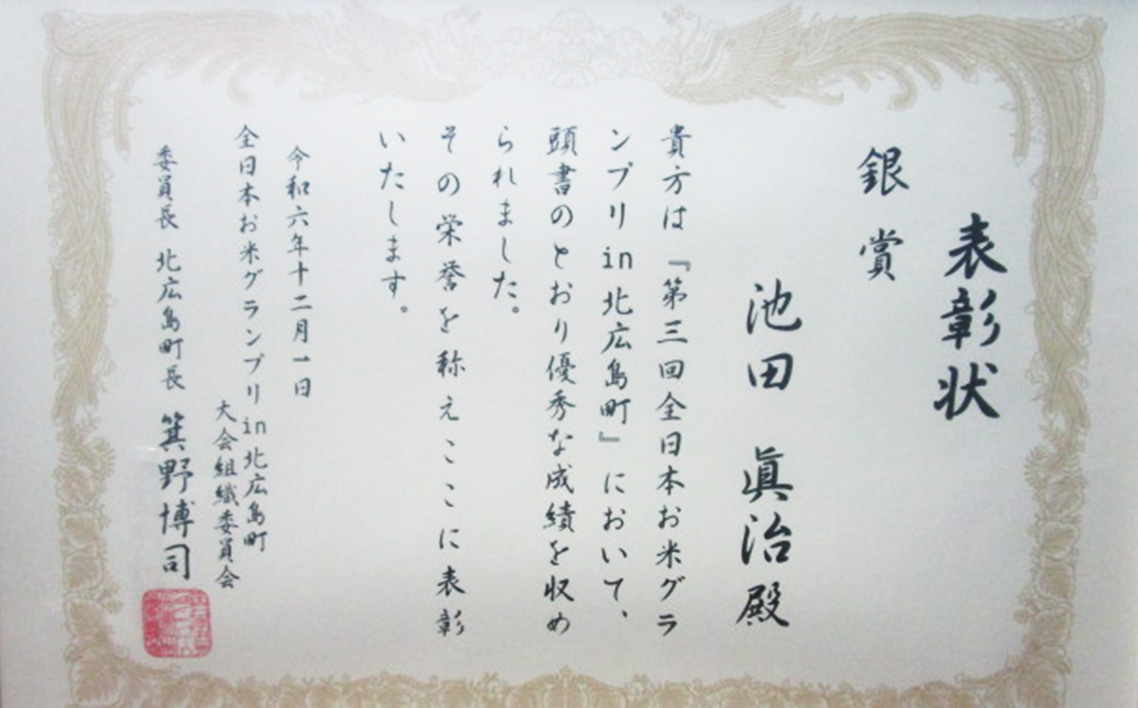 表彰状
銀賞
池田 眞治殿
貴方は『第三回全日本お米グラ
ンプリin北広島町』において、
頭書のとおり優秀な成績を収め
られました。
その栄誉を称えここに表彰
いたします。
令和六年十二月一日
全日本お米グランプリin北広島町
大会組織委員会
委員長 北広島町長 箕野博司